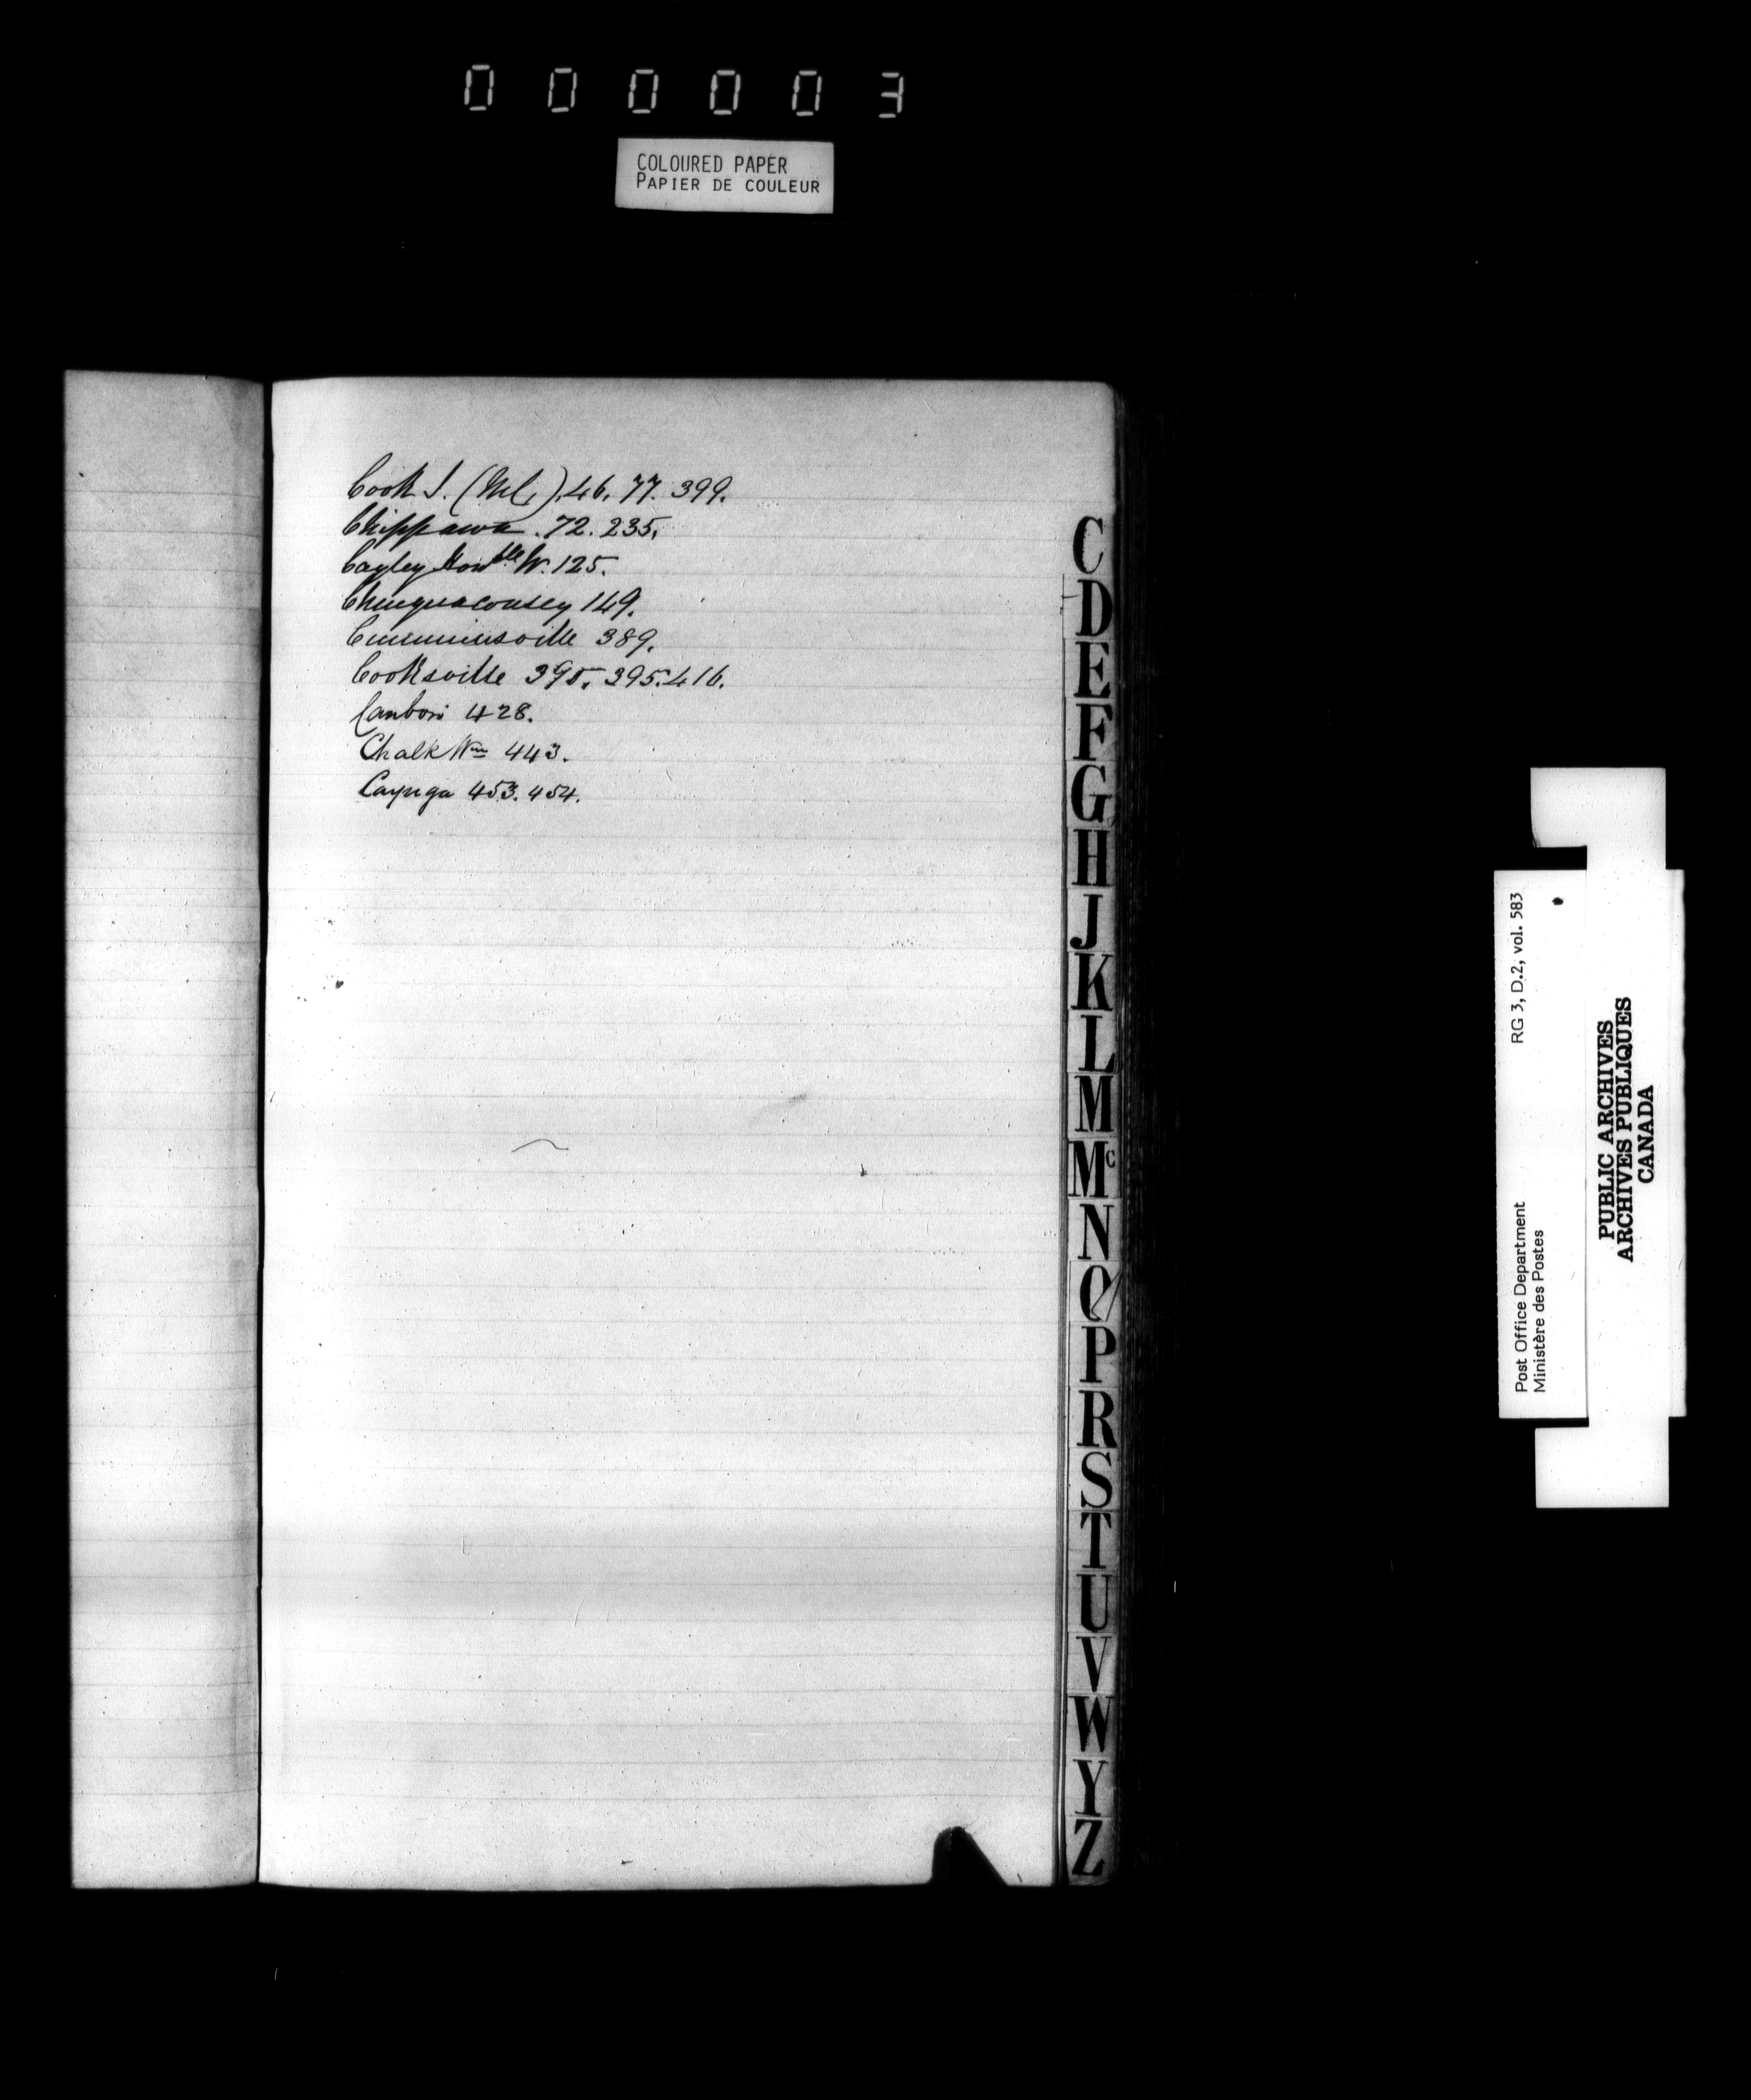 000003
COLOURED PAPER
PAPIER DE COULEUR
Cook J. (M.C.) 46. 77. 399.
Chippawa. 72. 235.
Cayley Honble W. 125.
Chinguacousey 149.
Cumminsville 389.
Cooksville 395. 416.
Canboro 428.
Chalk Wm 443.
Cayuga 453. 454.
C
D
E
F
G
H
J
K
L
M
Mc
N
O
P
R
S
T
U
V
W
Y
Z
Post Office Department RG 3, D.2, vol. 583
Ministère des Postes
PUBLIC ARCHIVES
ARCHIVES PUBLIQUES
CANADA